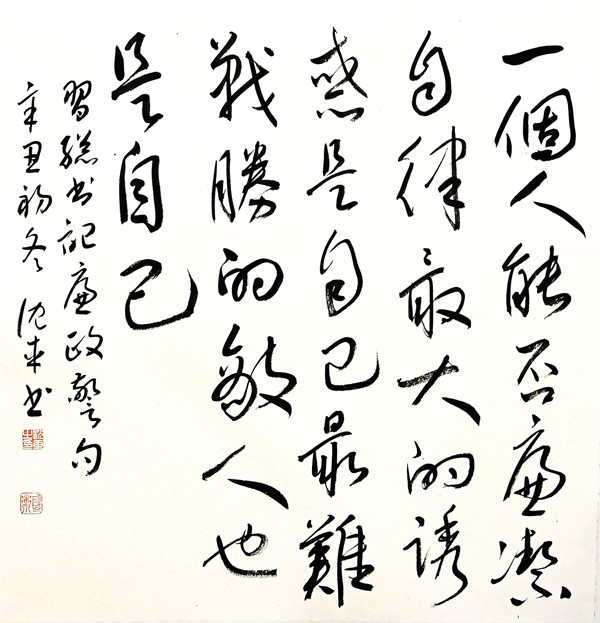 一個人能否廉潔
自律最大的誘
惑是自己最難
戰勝的敵人也
是自己
習總书記廉政警句
辛丑初冬 沈來书